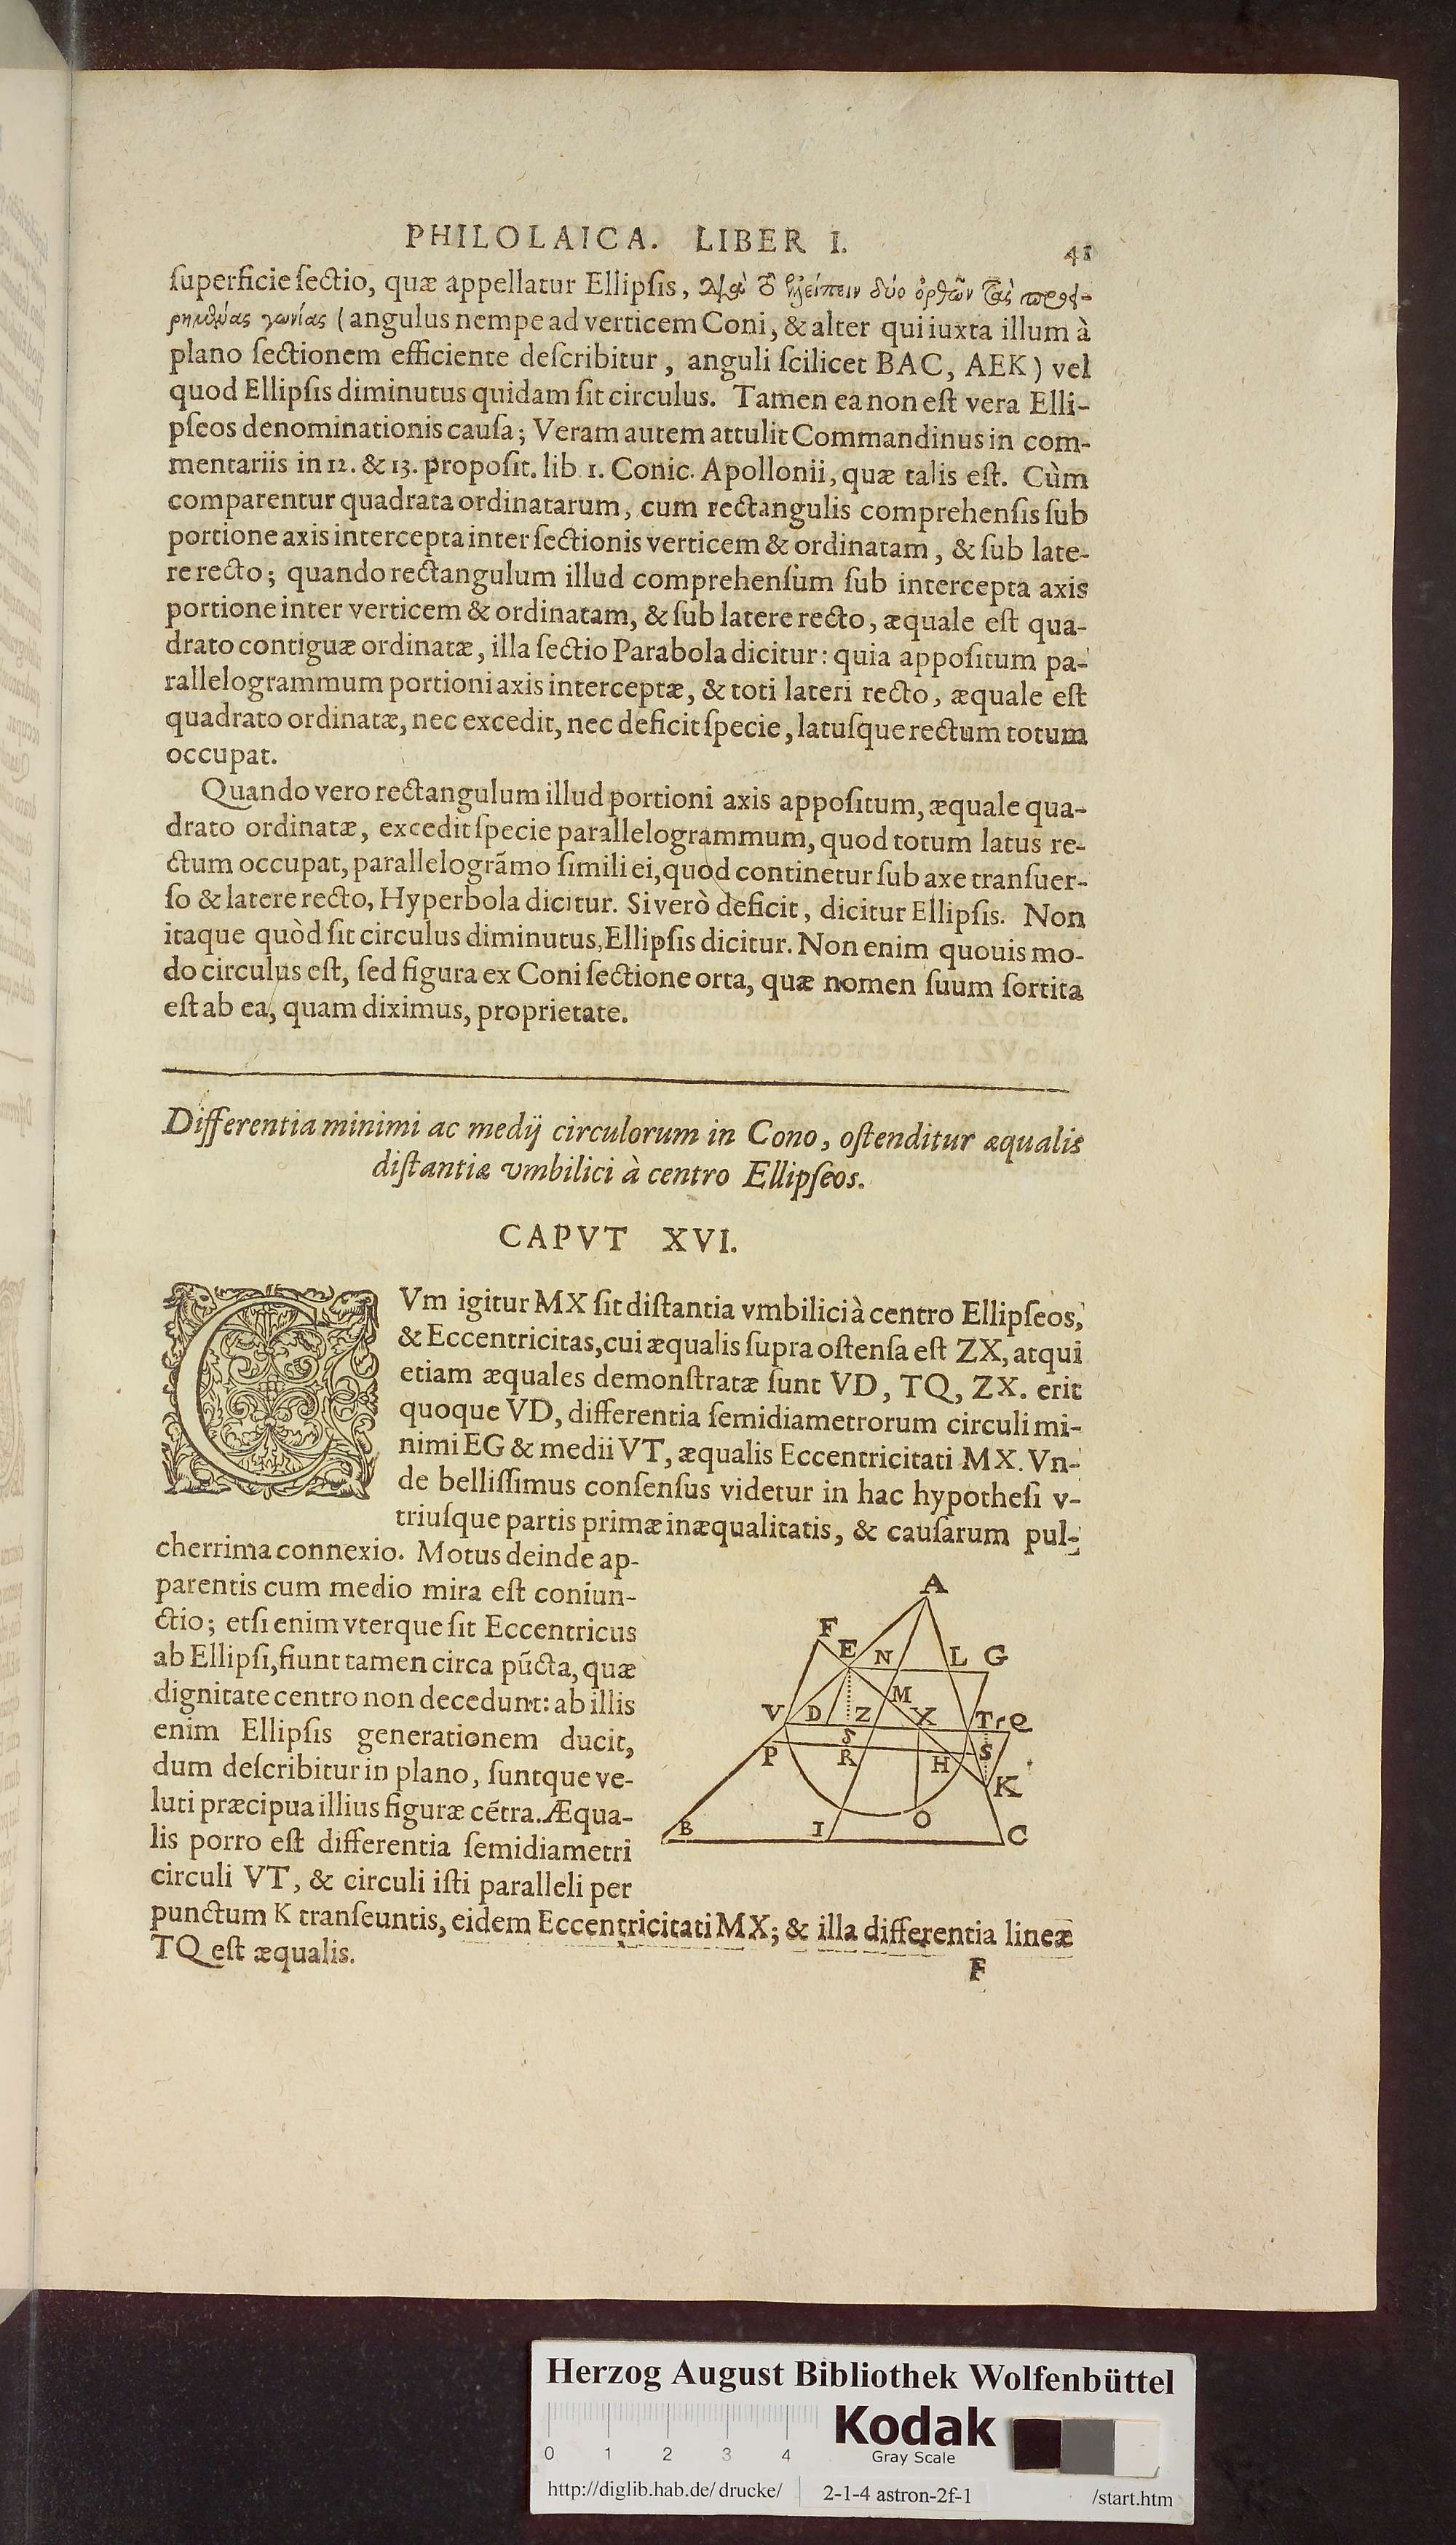 PHILOLAICA. LIBER I. 41
ſuperficie ſectio, quæ appellatur Ellipſis, δύο ὀρθῶν
γωνίας (angulus nempe ad verticem Coni, & alter qui iuxta illum à
plano ſectionem efficiente deſcribitur, anguli ſcilicet BAC, AEK) vel
quod Ellipſis diminutus quidam ſit circulus. Tamen ea non eſt vera Elli-
pſeos denominationis cauſa; Veram autem attulit Commandinus in com-
mentariis in 12. & 13. propoſit. lib 1. Conic. Apollonii, quæ talis eſt. Cùm
comparentur quadrata ordinatarum, cum rectangulis comprehenſis ſub
portione axis intercepta inter ſectionis verticem & ordinatam, & ſub late-
re recto; quando rectangulum illud comprehenſum ſub intercepta axis
portione inter verticem & ordinatam, & ſub latere recto, æquale eſt qua-
drato contiguæ ordinatæ, illa ſectio Parabola dicitur: quia appoſitum pa-
rallelogrammum portioni axis interceptæ, & toti lateri recto, æquale eſt
quadrato ordinatæ, nec excedit, nec deficit ſpecie, latuſque rectum totum
occupat.
Quando vero rectangulum illud portioni axis appoſitum, æquale qua-
drato ordinatæ, excedit ſpecie parallelogrammum, quod totum latus re-
ctum occupat, parallelográ̃mo ſimili ei, quod continetur ſub axe tranſuer-
ſo & latere recto, Hyperbola dicitur. Si verò deficit, dicitur Ellipſis. Non
itaque quòd ſit circulus diminutus, Ellipſis dicitur. Non enim quouis mo-
do circulus eſt, ſed figura ex Coni ſectione orta, quæ nomen ſuum ſortita
eſt ab ea, quam diximus, proprietate.
Differentia minimi ac medij circulorum in Cono, oſtenditur æqualis
diſtantiæ vmbilici à centro Ellipſeos.
CAPVT XVI.
CVm igitur MX ſit diſtantia vmbilici à centro Ellipſeos,
& Eccentricitas, cui æqualis ſupra oſtenſa eſt ZX, atqui
etiam æquales demonſtratæ ſunt VD, TQ, ZX. erit
quoque VD, differentia ſemidiametrorum circuli mi-
nimi EG & medii VT, æqualis Eccentricitati MX. Vn-
de belliſſimus conſenſus videtur in hac hypotheſi v-
triuſque partis primæ inæqualitatis, & cauſarum pul-
cherrima connexio. Motus deinde ap-
parentis cum medio mira eſt coniun-
ctio; etſi enim vterque ſit Eccentricus
ab Ellipſi, fiunt tamen circa pũcta, quæ
dignitate centro non decedunt: ab illis
enim Ellipſis generationem ducit,
dum deſcribitur in plano, ſuntque ve-
luti præcipua illius figuræ cẽtra. Æqua-
lis porro eſt differentia ſemidiametri
circuli VT, & circuli iſti paralleli per
punctum K tranſeuntis, eidem Eccentricitati MX; & illa differentia lineæ
TQ eſt æqualis.
A
F E N L G
M
V D Z X T r Q
P R H S
K
B I O C
F
Herzog August Bibliothek Wolfenbüttel
Kodak
Gray Scale
0 1 2 3 4
http://diglib.hab.de/drucke/ 2-1-4 astron-2f-1 /start.htm